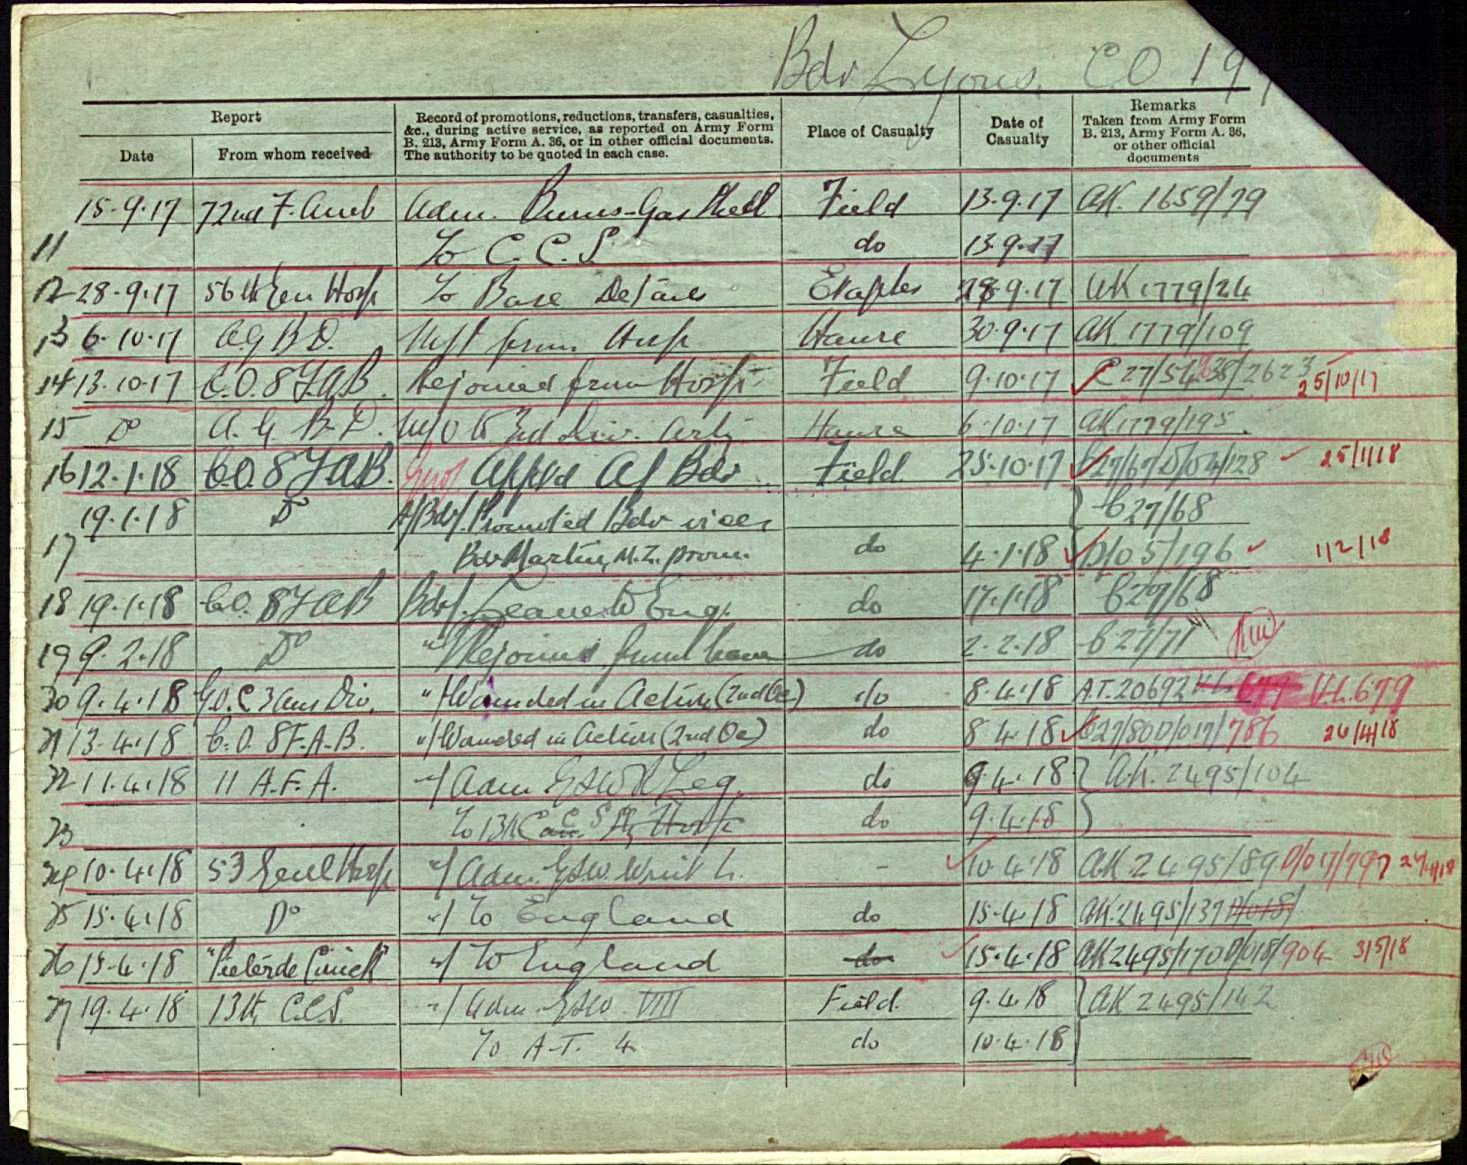 Bdr Lyons. C.O 19
Report
Date
From whom received
Record of promotions, reductions, transfers, casualties,
&c., during active service, as reported on Army Form
B. 213, Army Form A. 36, or in other official documents.
The authority to be quoted in each case.
Place of Casualty
Date of
Casualty
Remarks
Taken from Army Form
B. 213, Army Form A. 36,
or other official
documents
15.9.17 72nd F. Amb Adm. Burns-Gas Shell Field 13.9.17 AK. 1659/79
11 To C.C.S. do 13.9.17
12 28.9.17 56th Gen Hosp To Base Details Etaples 28.9.17 AK 1779/24
13 6.10.17 AGBD. from Hosp Havre 30.9.17 AK 1779/109
14 13.10.17 C.O. 8 FAB. Rejoined from Hosp Field 9.10.17 25/10/17
15 Do A.G.B.D. M/O to 3rd Div. Arty Havre 6.10.17 AK 1779/195.
16 12.1.18 C.O. 8 FAB. Gnr/ Appd A/Bdr Field 25.10.17 25/1/18
19.1.18 Do A/Bdr/. Promoted Bdr vice } B27/68
17 Bdr Martin, M.L. prom. do 4.1.18 D/O 5/196 1/2/18
18 19.1.18 C.O. 8 FAB Bdr/. Leave to Eng. do 17.1.18 B27/68
19 9.2.18 Do "/ Rejoined from leave do 2.2.18 B27/71
20 9.4.18 G.O.C. 3 Aus Div. "/ Wounded in Action (2nd Oc) do 8.4.18 A.T. 20692 H.L. 679
21 13.4.18 C.O. 8 F.A.B. "/ Wounded in Action (2nd Oc) do 8.4.18 B27/80 D/017/786 26/4/18
22 11.4.18 11 A.F.A. "/ Adm GSW R Leg. do 9.4.18 } AK. 2495/104
23 To 13th C.C.S. do 9.4.18 }
24 10.4.18 53 Genl Hosp "/ Adm. GSW. Wrist L. - 10.4.18 AK 2495/89 D/017/797
25 15.4.18 Do "/ To England do 15.4.18 AK.2495/137
26 15.4.18 "Pieter de Coninck" "/ To England do 15.4.18 AK 2495/170 D/018/904 3/5/18
27 19.4.18 13th C.C.S. "/ Adm. GSW VIII Field 9.4.18 } AK 2495/142
To A.T. 4 do 10.4.18